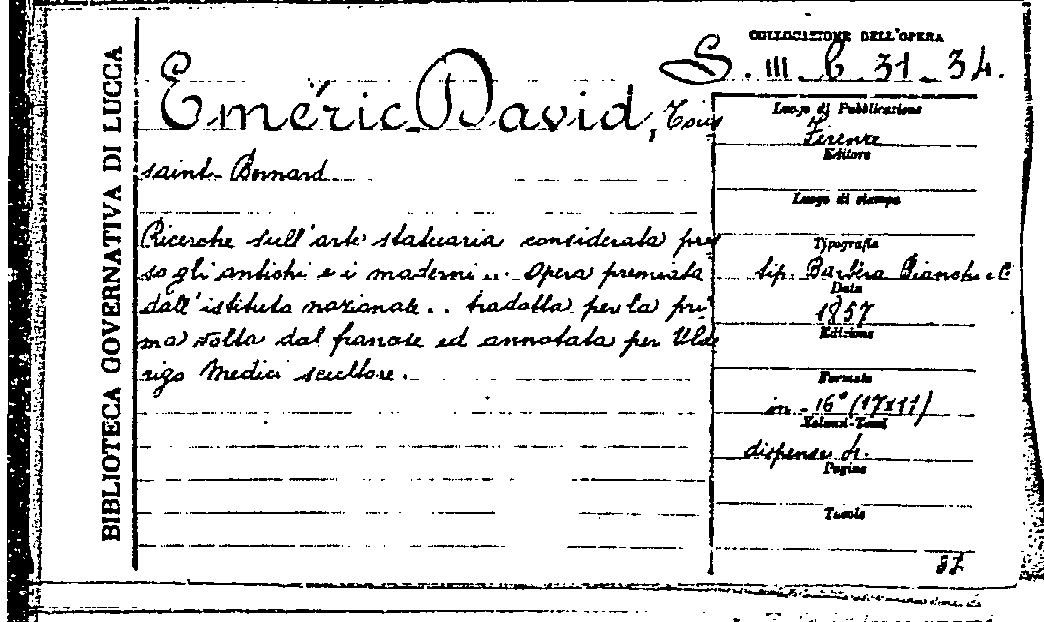 BIBLIOTECA GOVERNATIVA DI LUCCA
COLLOCAZIONE DELL'OPERA
S. III b 31-34.
Eméric-David, Tous
saint-Bernard
Ricerche sull'arte statuaria considerata pres
so gli antichi e i moderni... Opera premiata
dall'istituto nazionale... tradotta per la pri
ma volta dal francese ed annotata per Ulde
rigo Medici scultore.
Luogo di Pubblicazione
Firenze
Editore
Luogo di stampa
Tipografia
tip. Barbèra Bianchi e C
Data
1857
Edizione
Formato
in-16° (17x11)
Volumi-Tomi
dispense 4.
Pagine
Tavole